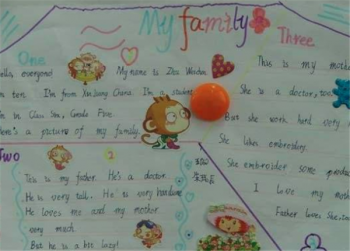 My family
One
Hello, everyone! My name is Zhu
I'm ten. I'm from Xin Jiang China. I'm a student.
I'm in Class Six, Grade Five.
Here's a picture of my family.
Two
2
This is my father. He's a doctor.
He is very tall. He is very handsome
He loves me and my mother
very much.
But he is a bit lazy!
Three
This is my mother
She is a doctor, too.
But she work hard very
She likes embroidery.
She embroider some
I love my mother
Father loves She